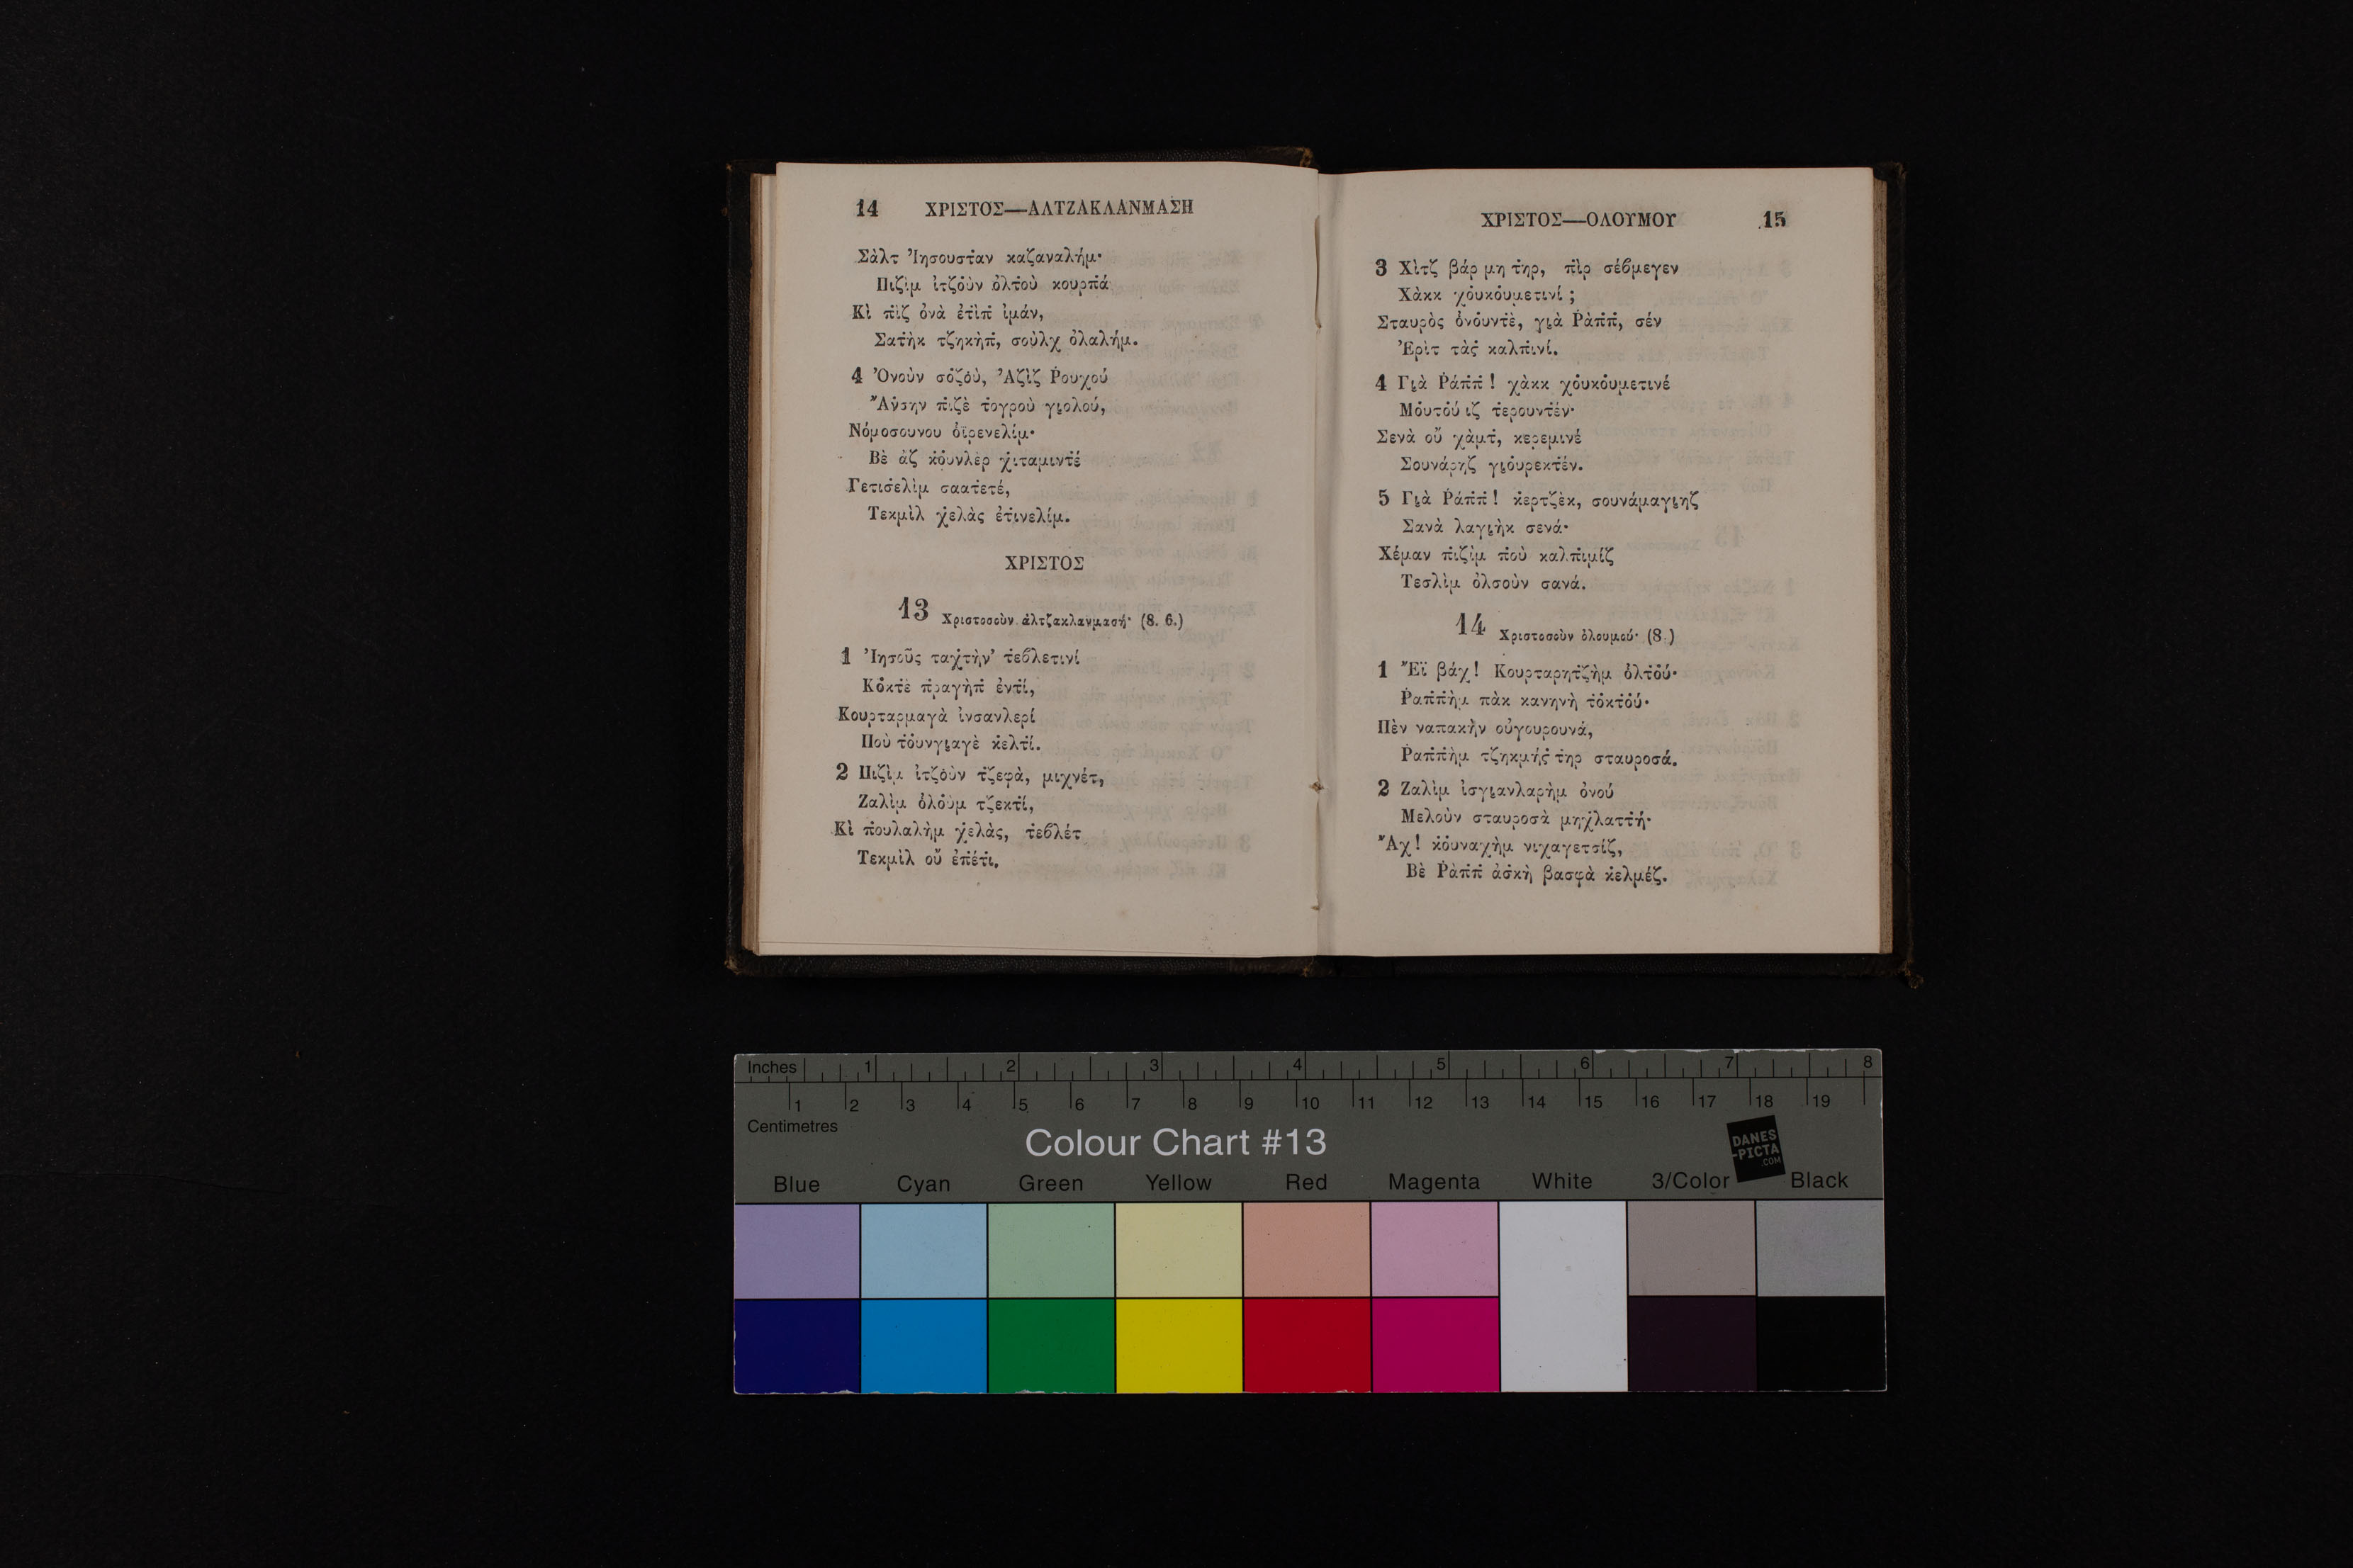 14 ΧΡΙΣΤΟΣ—ΑΛΤΖΑΚΛΑΝΜΑΣΗ
Σὰλτ Ἰησουστ̇αν καζαναλήμ·
Πιζὶμ ἰτζο̇ὺν ὀλτ̇οὺ κουρπ̇ά
Κὶ π̇ὶζ ὀνὰ ἐτὶπ̇ ἰμάν,
Σατ̇ὴκ τζηκὴπ̇, σοὺλχ ὀλαλήμ.
4 Ὀνοὺν σο̇ζο̇ὺ, Ἀζὶζ Ῥουχού
Ἄν̇σην π̇ιζὲ τ̇ογροὺ γιολού,
Νόμοσουνου ὀ̇ϊρενελίμ·
Βὲ ἀζ κ̇ο̇υνλὲρ χ̇ιταμιντ̇έ
Γετισ̇ελὶμ σαατ̇ετέ,
Τεκμὶλ χ̇ελὰς ἐτ̇ινελίμ.
ΧΡΙΣΤΟΣ
13 Χριστοσοὺν ἀλτζακλανμασή· (8. 6.)
1 Ἰησοῦς ταχ̇τὴν' τ̇εβλετινί
Κο̇κτ̇ὲ π̇ραγὴπ̇ ἐντ̇ί,
Κουρταρμαγὰ ἰνσανλερί
Ποὺ τ̇ο̇υνγιαγὲ κ̇ελτ̇ί.
2 Πιζὶμ ἰτζο̇ὺν τζεφὰ, μιχνέτ,
Ζαλὶμ ὀ̇λο̇ὺμ τζεκτ̇ί,
Κὶ π̇ουλαλὴμ χ̇ελὰς, τ̇εβλέτ
Τεκμὶλ οὔ ἐπ̇έτι.
ΧΡΙΣΤΟΣ—ΟΛΟΥΜΟΥ 15
3 Χὶτζ βάρ μη τ̇ηρ, π̇ὶρ σέβμεγεν
Χὰκκ χο̇υκο̇υμετινί ;
Σταυρὸς ὀ̇νο̇υντ̇ὲ, γιὰ Ῥὰπ̇π̇, σέν
Ἐρὶτ τὰς̇ καλπ̇ινί.
4 Γιὰ Ῥάπ̇π̇! χὰκκ χο̇υκο̇υμετινέ
Μο̇υτο̇ύιζ τ̇ερουντ̇έν·
Σενὰ οὔ χὰμτ̇, κερεμινέ
Σουνάρηζ γιο̇υρεκτ̇έν.
5 Γιὰ Ῥάπ̇π̇! κ̇ερτζὲκ, σουνάμαγιηζ
Σανὰ λαγιὴκ σενά·
Χέμαν π̇ιζὶμ π̇οὺ καλπ̇ιμίζ
Τεσλὶμ ὀλσοὺν σανά.
14 Χριστοσοὺν ὀ̇λουμού· (8.)
1 Ἔϊ βάχ! Κουρταρητζὴμ ὀ̇λτ̇ο̇ύ·
Ῥαπ̇π̇ὴμ πὰκ κανηνὴ τ̇ο̇κτ̇ο̇ύ·
Πὲν ναπακὴν οὐγουρουνά,
Ῥαπ̇π̇ὴμ τζηκμής̇ τ̇ηρ σταυροσά.
2 Ζαλὶμ ἰσγιανλαρὴμ ὀνού
Μελοὺν σταυροσὰ μηχ̇λαττ̇ή·
Ἄχ! κ̇ο̇υναχὴμ νιχαγετσίζ,
Βὲ Ῥὰπ̇π̇ ἀσ̇κὴ βασφὰ κ̇ελμέζ.
Inches 1 2 3 4 5 6 7 8
1 2 3 4 5 6 7 8 9 10 11 12 13 14 15 16 17 18 19
Centimetres
Colour Chart #13
DANES
-PICTA
.COM
Blue Cyan Green Yellow Red Magenta White 3/Color Black